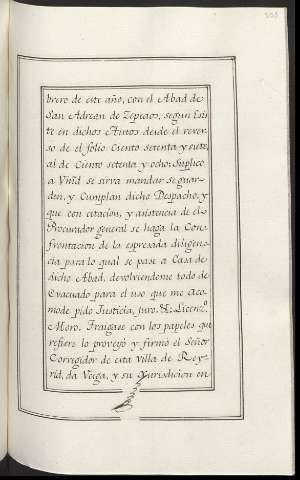 brero de este año, con el Abad de
San Adrean de Zepeaos, segun Exis
te en dichos Autos desde el rever
so del folio Ciento setenta y siete,
al de Ciento setenta y ocho: Suplico
a Vmd se sirva mandar se guar-
den, y Cumplan dicho Despacho, y
que con citacion, y asistencia de el
Procurador general se haga la Con
frontacion de la expresada diligen
cia para lo qual se pase a Casa de
dicho Abad, devolviendome todo de
Evacuado para el uso que me aco-
mode pido Justicia, juro, &. Licenz.º
Moro. Traigase con los papeles que
refiere lo proveyó y firmó el Señor
Corregidor de esta Villa de Rey,
da Veiga, y su Jurisdicion en